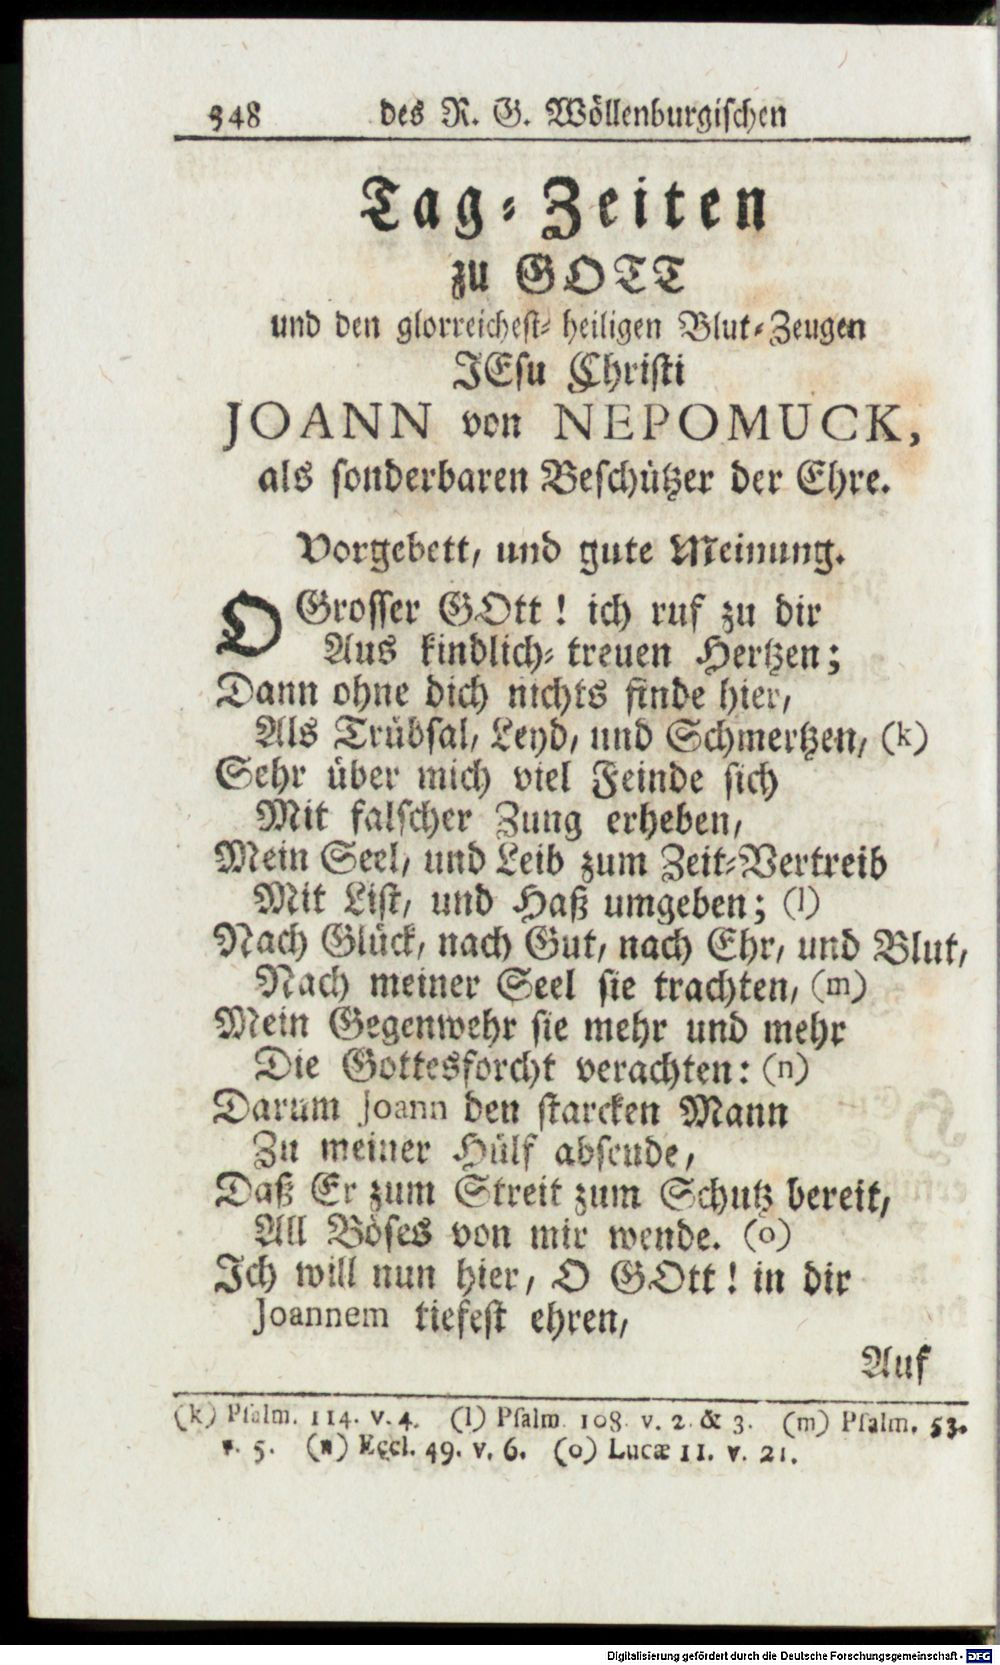 348 des R. G. Wöllenburgischen
Tag-Zeiten
zu GOTT
und den glorreichest-heiligen Blut-Zeugen
JEsu Christi
JOANN von NEPOMUCK,
als sonderbaren Beschützer der Ehre.
Vorgebett, und gute Meinung.
O Grosser GOtt! ich ruf zu dir
Aus kindlich-treuen Hertzen;
Dann ohne dich nichts finde hier,
Als Trübsal, Leyd, und Schmertzen, (k)
Sehr über mich viel Feinde sich
Mit falscher Zung erheben,
Mein Seel, und Leib zum Zeit-Vertreib
Mit List, und Haß umgeben; (l)
Nach Glück, nach Gut, nach Ehr, und Blut,
Nach meiner Seel sie trachten, (m)
Mein Gegenwehr sie mehr und mehr
Die Gottesforcht verachten: (n)
Darum Joann den starcken Mann
Zu meiner Hülf absende,
Daß Er zum Streit zum Schutz bereit,
All Böses von mir wende. (o)
Ich will nun hier, O GOtt! in dir
Joannem tiefest ehren,
Auf
(k) Psalm. 114. v. 4. (l) Psalm. 108. v. 2. & 3. (m) Psalm. 53.
v. 5. (n) Eccl. 49. v. 6. (o) Lucæ 11. v. 21.
Digitalisierung gefördert durch die Deutsche Forschungsgemeinschaft - DFG